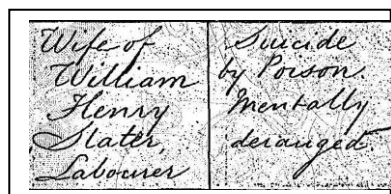 Wife of
William
Henry
Slater,
Labourer
Suicide
by Poison.
Mentally
deranged.